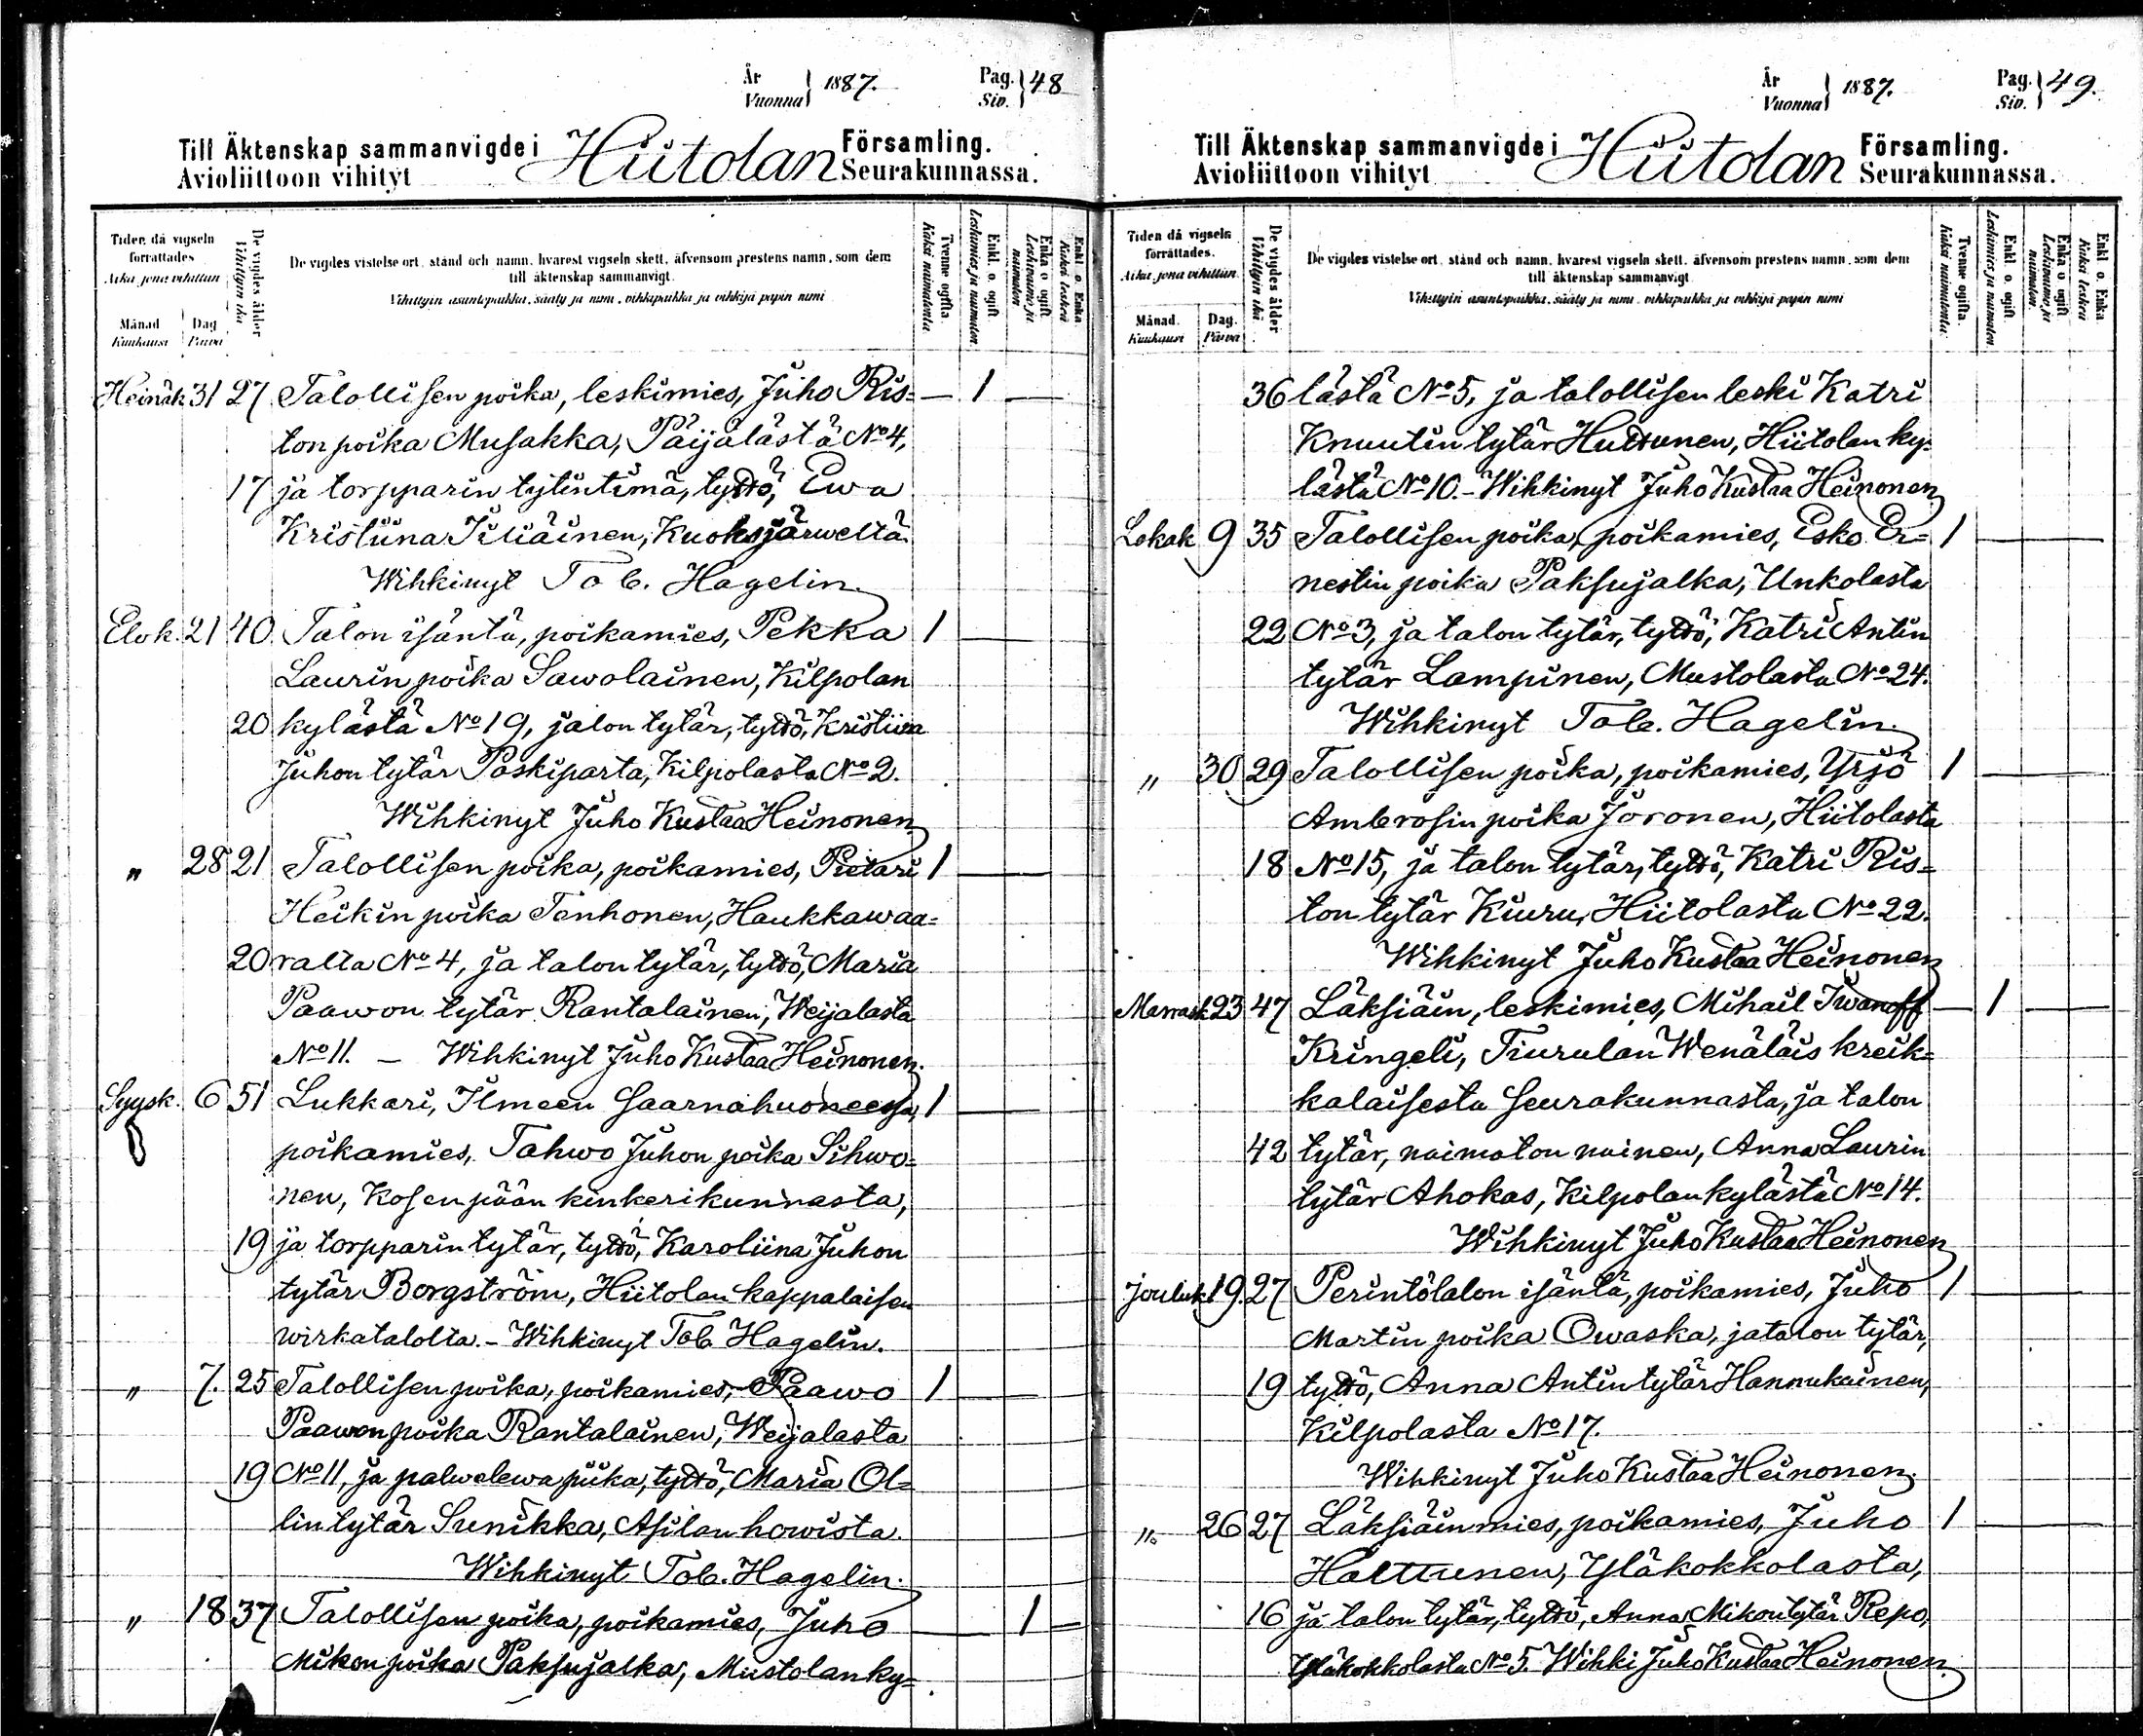 År
Vuonna } 1887.
Pag.
Siv. } 48
Till Äktenskap sammanvigde i Hiitolan Församling.
Avioliittoon vihityt Seurakunnassa.
Tiden då vigseln förrättades.
Aika, jona vihittiin
Månad Dag
Kuukausi Päivä
De vigdes ålder
Vihittyin ikä
De vigdes vistelse ort, stånd och namn, hvarest vigseln skett, äfvensom prestens namn, som dem
till äktenskap sammanvigt.
Vihittyin asuntopaikka, sääty ja nimi, vihkipaikka ja vihkijä papin nimi
Tvenne ogifta.
Kaksi naimatonta
Enkl. o. ogift.
Leskimies ja naimaton.
Enka o ogift
Leskivaimo ja naimaton
Enkl o. Enka.
Kaksi leskeä
Heinäk. 31 27 Talollisen poika, leskimies, Juho Ris= — 1 —
ton poika Musakka, Päijälästä No 4,
17 ja torpparin tytintimä, tyttö, Ewa
Kristiina Jiliäinen, Kuoksjärweltä.
Wihkinyt Tob. Hagelin.
Elok. 21 40 Talon isäntä, poikamies, Pekka 1 —
Laurin poika Sawolainen, Kilpolan
20 kylästä No 19, jalon tytär, tyttö, Kristiina
Juhon tytär Paskiparta, Kilpolasta No 2.
Wihkinyt Juho Kustaa Heinonen
" 28 21 Talollisen poika, poikamies, Pietari 1 —
Heikin poika Tenhonen, Haukkawaa=
20 ralta No 4, ja talon tytär, tyttö, Maria
Paawon tytär Rantalainen, Weijalasta
No 11. – Wihkinyt Juho Kustaa Heinonen.
Syysk. 6 51 Lukkari, Ilmeen Saarnahuoneessa, 1 —
poikamies, Tahwo Juhon poika Sihwo=
nen, Kosenpään kinkerikunnasta,
19 ja torpparin tytär, tyttö, Karoliina Juhon
tytär Borgström, Hiitolan kappalaisen
wirkatalolta. – Wihkinyt Tob Hagelin.
" 7. 25 Talollisen poika, poikamies, Paawo 1 —
Paawon poika Rantalainen, Weijalasta
19 No 11, ja palwelewa piika, tyttö, Maria Ol=
lin tytär Sunikka, Asilan howista.
Wihkinyt Tob. Hagelin.
" 18 37 Talollisen poika, poikamies, Juho — 1 –
Mikon poika Paksujalka, Mustolan ky=
År
Vuonna } 1887.
Pag.
Siv. } 49.
Till Äktenskap sammanvigde i Hiitolan Församling.
Avioliittoon vihityt Seurakunnassa.
Tiden då vigseln förrättades.
Aika, jona vihittiin
Månad. Dag.
Kuukausi Päivä
De vigdes ålder
Vihittyin ikä.
De vigdes vistelse ort, stånd och namn, hvarest vigseln skett, äfvensom prestens namn, som dem
till äktenskap sammanvigt
Vihittyin asuntopaikka, sääty ja nimi, vihkipaikka ja vihkijä papin nimi
Tvenne ogifta.
Kaksi naimatonta.
Enkl. o. ogift.
Leskimies ja naimaton
Enka o ogift
Leskivaimo ja naimaton.
Enkl o. Enka
Kaksi leskeä
36 lästä No 5, ja talollisen leski Katri
Knuutin tytär Huttunen, Hiitolan ky=
lästä No 10. – Wihkinyt Juho Kustaa Heinonen
Lokak 9 35 Talollisen poika, poikamies, Esko Er= 1 —
nestin poika Paksujalka, Unkolasta
22 No 3, ja talon tytär, tyttö, Katri Antin
tytär Lampinen, Mustolasta No 24.
Wihkinyt Tob. Hagelin.
" 30 29 Talollisen poika, poikamies, Yrjö 1 —
Ambrosin poika Joronen, Hiitolasta
18 No 15, ja talon tytär, tyttö, Katri Ris=
ton tytär Kiuru, Hiitolasta No 22.
Wihkinyt Juho Kustaa Heinonen
Marrask 23 47 Läksiäin, leskimies, Mihail Iwanoff — 1 —
Kringeli, Tiurulan Wenäläis kreik=
kalaisesta Seurakunnasta, ja talon
42 tytär, naimaton nainen, Anna Laurin
tytär Ahokas, Kilpolan kylästä No 14.
Wihkinyt Juho Kustaa Heinonen
Jouluk 19. 27 Perintötalon isäntä, poikamies, Juho 1 —
Martin poika Owaska, ja talon tytär,
19 tyttö, Anna Antin tytär Hannukainen,
Kilpolasta No 17.
Wihkinyt Juho Kustaa Heinonen.
" 26 27 Läksiäinmies, poikamies, Juho 1 —
Halttunen, Yläkokkolasta,
16 ja talon tytär, tyttö, Anna Mikon tytär Repo,
Yläkokkolasta No 5. Wihki Juho Kustaa Heinonen.